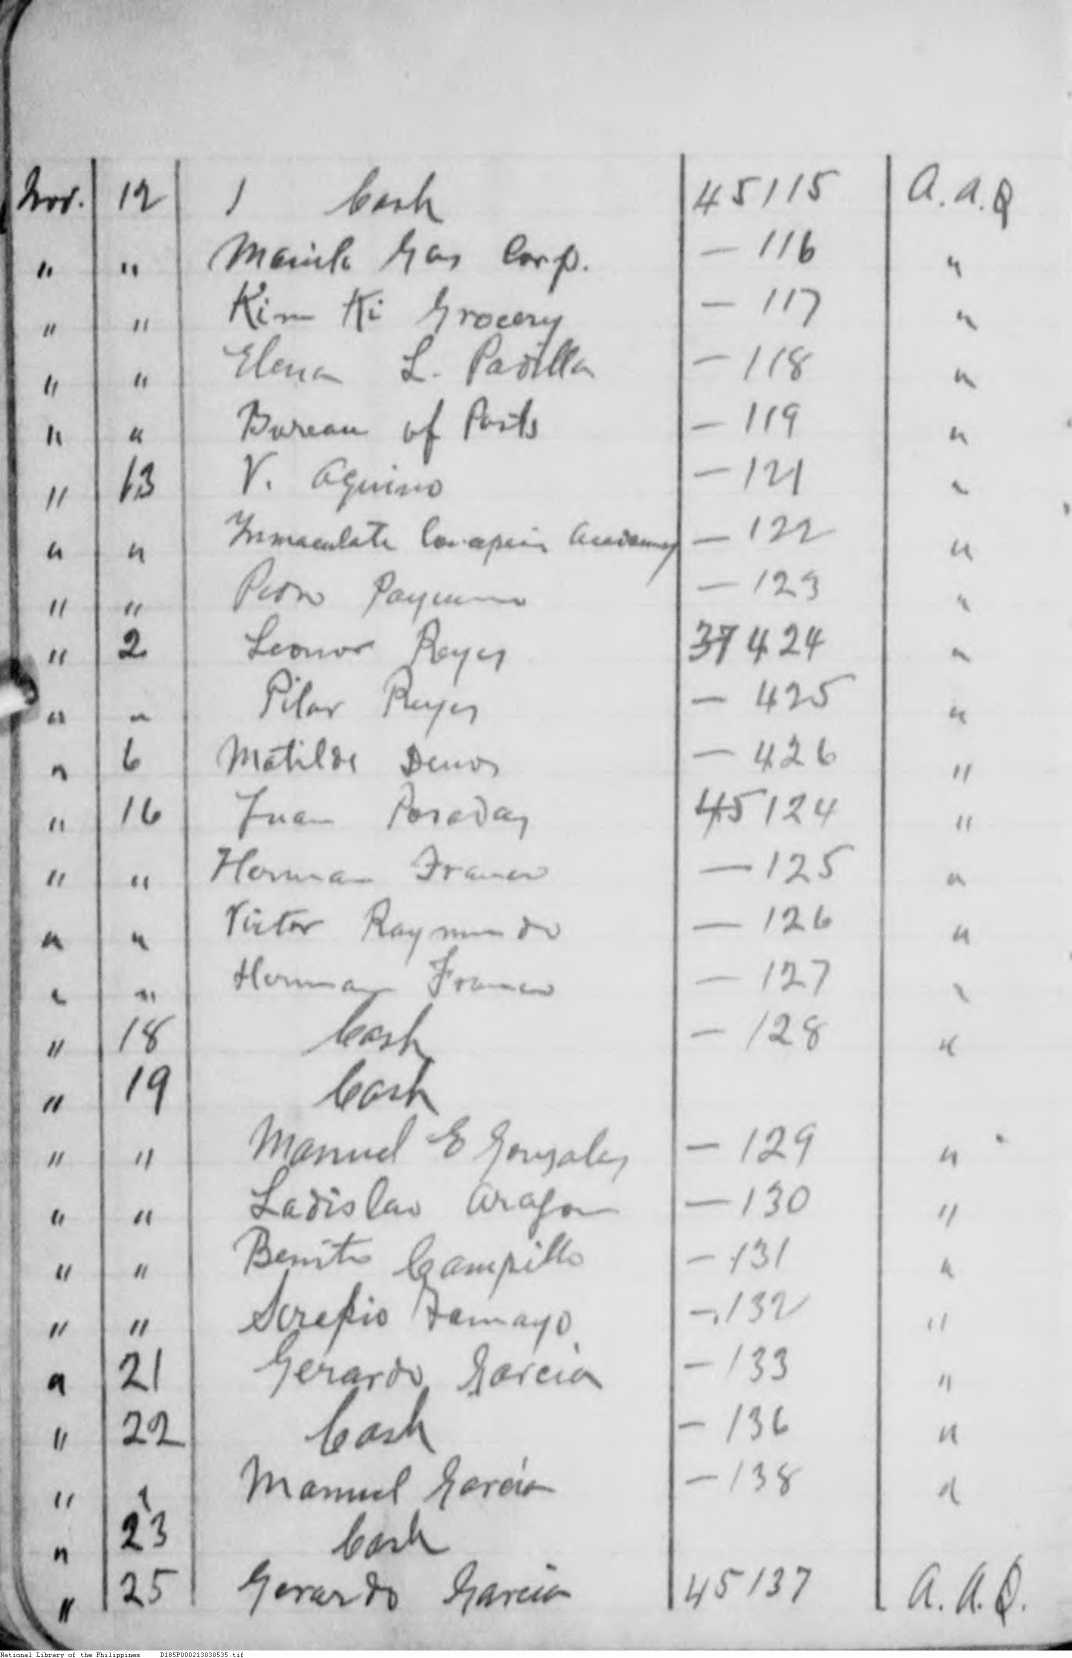 Nov. 12 1 Cash 45115 A.A.Q
" " Manila Gas Corp. — 116 "
" " Kim Ki Grocery — 117 "
" " Elena L. Padilla — 118 "
" " Bureau of Posts — 119 "
" 13 V. Aquino — 121 "
" " Immaculate Academy — 122 "
" " Pedro — 123 "
" 2 Leonor Reyes 37424 "
" " Pilar Reyes — 425 "
" 6 Matilde — 426 "
" 16 Juan Posadas 45124 "
" " Herman Franco — 125 "
" " Victor Raymundo — 126 "
" " Herman Franco — 127 "
" 18 Cash — 128 "
" 19 Cash
" " Manuel E Gonzales — 129 "
" " Ladislao Aragon — 130 "
" " Benito Campillo — 131 "
" " Serapio Tamayo — 132 "
" 21 Gerardo Garcia — 133 "
" 22 Cash — 136 "
" " Manuel Garcia — 138 "
" 23 Cash
" 25 Gerardo Garcia 45137 A.A.Q.
National Library of the Philippines D185P000213838535.tif